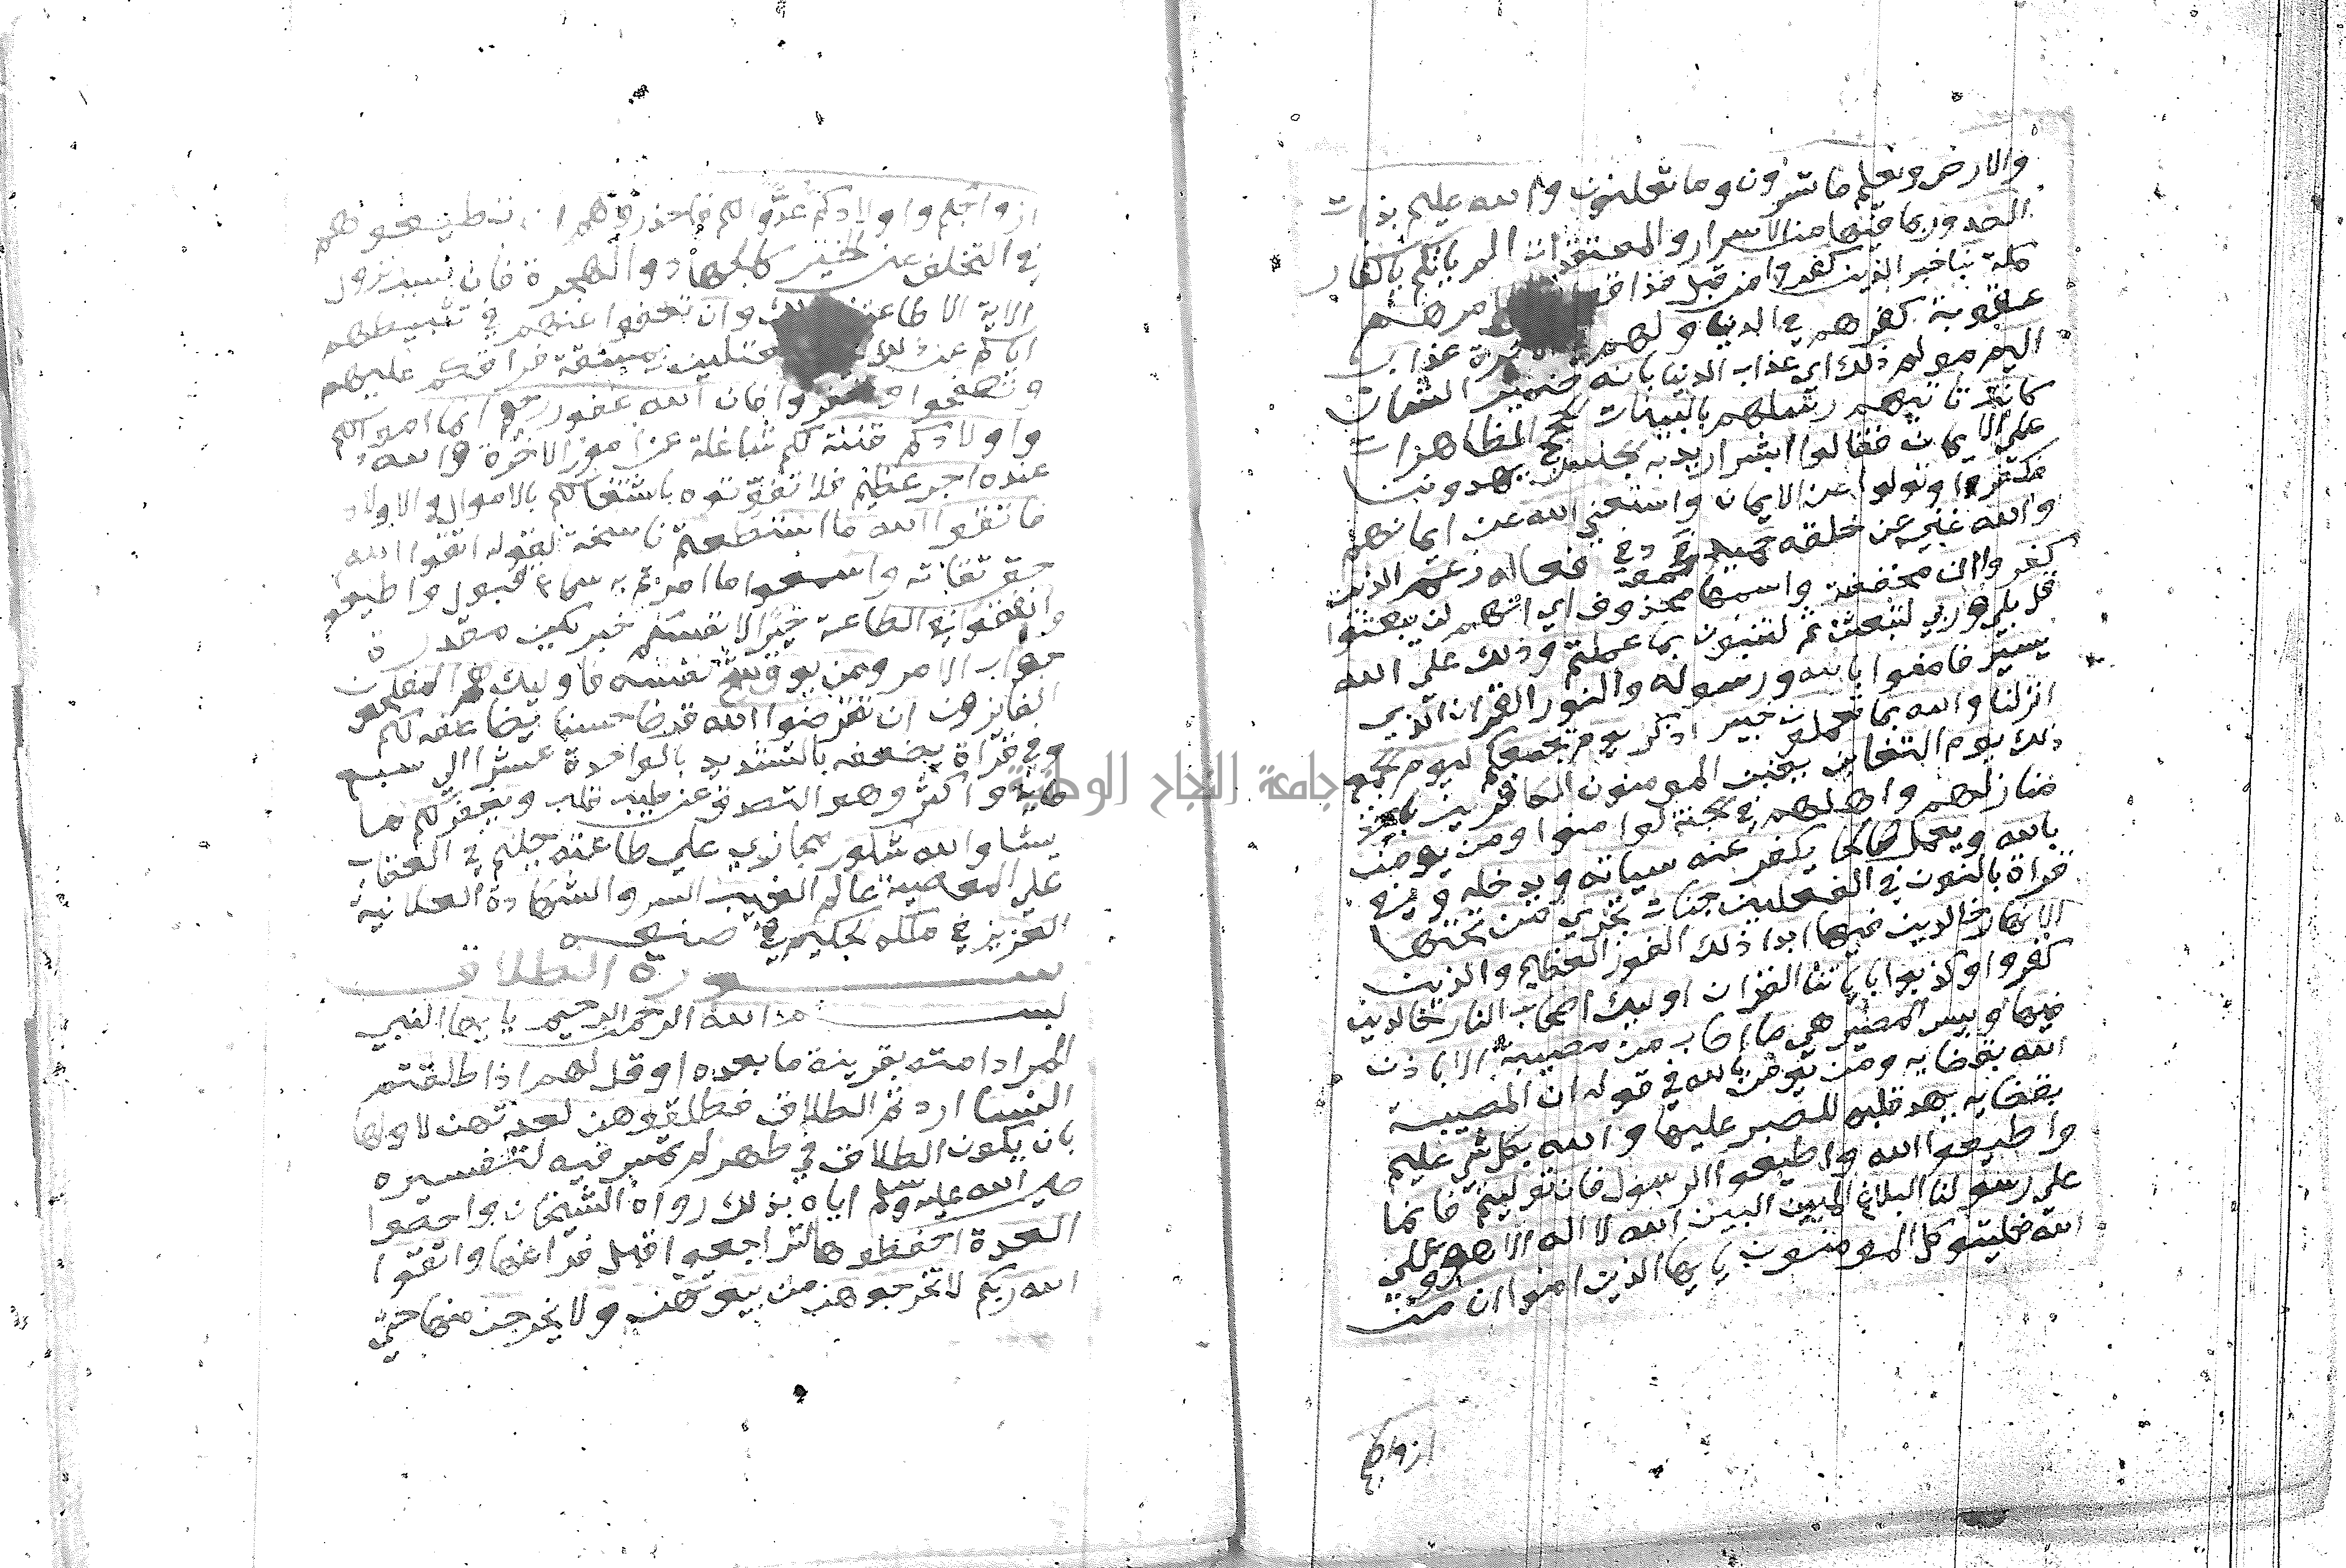 والارض ويعلم ما تسرون وما تعلنون والله عليم بذات
الصدور بما فيها من الاسرار والمعتقدات الم ياتكم ياكفار
مكة نبا خبر الذين كفروا من قبل فذاقوا امرهم
عقوبة كفرهم في الدنيا ولهم في الاخرة عذاب
اليم مولم ذلك اي عذاب الدنيا بانه ضمير الشان
كانت تاتيهم رسلهم بالبينات الحجج الظاهرات
علي الايمان فقالوا ابشر اريد به الجنس يهدوننا
فكفروا وتولوا عن الايمان واستغني الله عن ايمانهم
والله غني عن خلقه حميد محمود في افعاله زعم الذين
كفروا ان مخففة واسمها محذوف اي انهم لن يبعثوا
قل بلي وربي لتبعثن ثم لتنبون بما عملتم وذلك علي الله
يسير فامنوا بالله ورسوله والنور القران الذي
انزلنا والله بما تعملون خبير اذكر يوم يجمعكم ليوم الجمع
ذلك يوم التغابن يغبن المومنون الكافرين باخذ
منازلهم واهلهم في الجنة لو امنوا ومن يومن
بالله ويعمل صالحا يكفر عنه سياته ويدخله وفي
قراة بالنون في الفعلين جنات تجري من تحتها
الانهار خالدين فيها ابدا ذلك الفوز العظيم والذين
كفروا وكذبوا باياتنا القران اوليك اصحاب النار خالدين
فيها وبيس المصير هي ما اصاب من مصيبة الا باذن
الله بقضايه ومن يومن بالله في قوله ان المصيبة
بقضايه يهد قلبه للصبر عليها والله بكل شي عليم
واطيعوا الله واطيعوا الرسول فان توليتم فانما
علي رسولنا البلاغ المبين البين الله لا اله الا هو وعلي
الله فليتوكل المومنون يايها الذين امنوا ان من
ازواجكم
ازواجكم واولادكم عدوا لكم فاحذروهم ان تطيعوهم
في التخلف عن الخير كالجهاد والهجرة فان سبب نزول
الاية الاطاعة في ذلك وان تعفوا عنهم في تثبيطهم
اياكم عن ذلك معتلين بمشقة فراقكم عليهم
وتصفحوا وتغفروا فان الله غفور رحيم انما اموالكم
واولادكم فتنة لكم شاغلة عن امور الاخرة والله
عنده اجر عظيم فلا تفوتوه باشتغالكم بالاموال والاولاد
فاتقوا الله ما استطعتم ناسخة لقوله اتقوا الله
حق تقاته واسمعوا ما امرتم به سماع قبول واطيعوا
وانفقوا في الطاعة خيرا لانفسكم خبر يكن مقدرة
جواب الامر ومن يوق شح نفسه فاوليك هم المفلحون
الفايزون ان تقرضوا الله قرضا حسنا يضاعفه لكم
وفي قراة يضعفه بالتشديد بالواحدة عشرا الي سبع
ماية واكثر وهو التصدق عن طيب قلب ويغفر لكم ما
يشا والله شكور مجازي علي طاعته حليم في العقاب
علي المعصية عالم الغيب السر والشهادة العلانية
العزيز في ملكه الحكيم في صنعه
سورة الطلاق
بسم الله الرحمن الرحيم يايها النبي
المراد امته بقرينة ما بعده او قل لهم اذا طلقتم
النسا اردتم الطلاق فطلقوهن لعدتهن لاولها
بان يكون الطلاق في طهر لم تمس فيه لتفسيره
صلي الله عليه وسلم اياه بذلك رواه الشيخان واحصوا
العدة احفظوها لتراجعوا قبل فراغها واتقوا
الله ربكم لا تخرجوهن من بيوتهن ولا يخرجن منها حتي
جامعة النجاح الوطنية